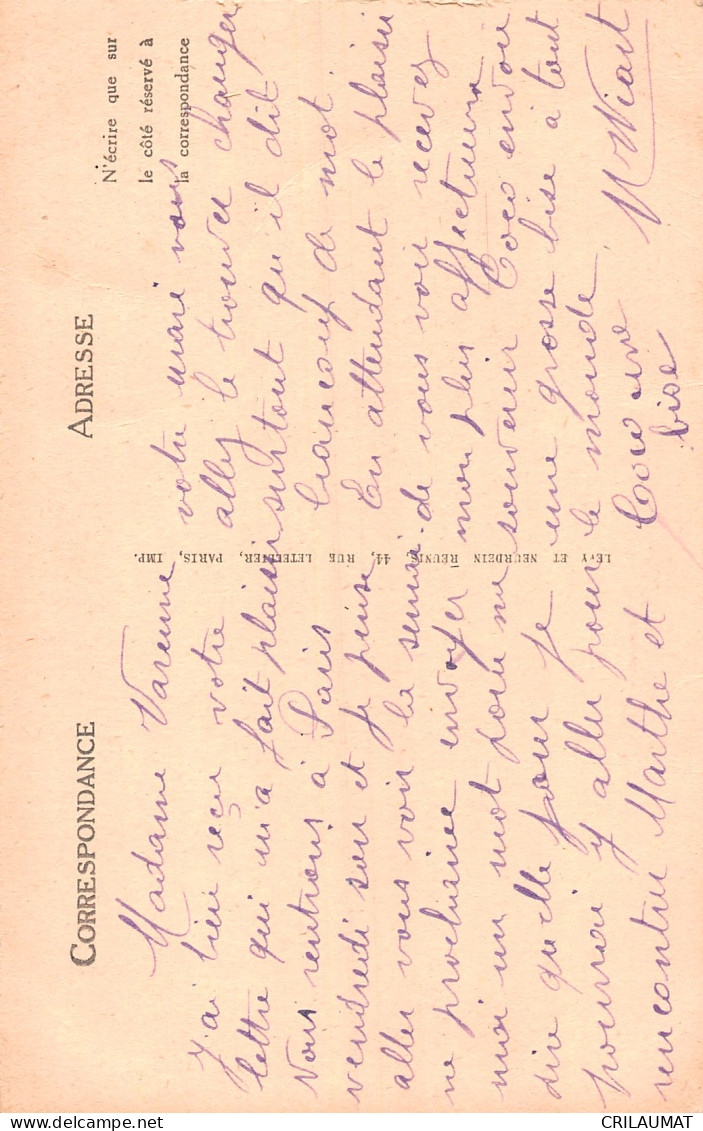 CORRESPONDANCE
Madame Varenne
j'ai bien reçu votre
lettre qui m'a fait plaisir
Nous rentrons à Paris
vendredi soir et je pense
aller vous voir la semai-
ne prochaine envoyer
moi un mot pour me
dire quelle jour je
pourrai y aller pour
rencontrer Marthe et
LÉVY ET NEURDEIN RÉUNIS, 44, RUE LETELLIER, PARIS, IMP.
ADRESSE
N'écrire que sur
le côté réservé à
la correspondance
votre mari vous
allez le trouver changer
surtout qu'il dit
beaucoup de mot.
En attendant le plaisir
de vous voir recevez
mon plus affectueux
souvenir Coco envoie
une grosse bise à tout
le monde
Coco une
bise
M Wiart
CRILAUMAT